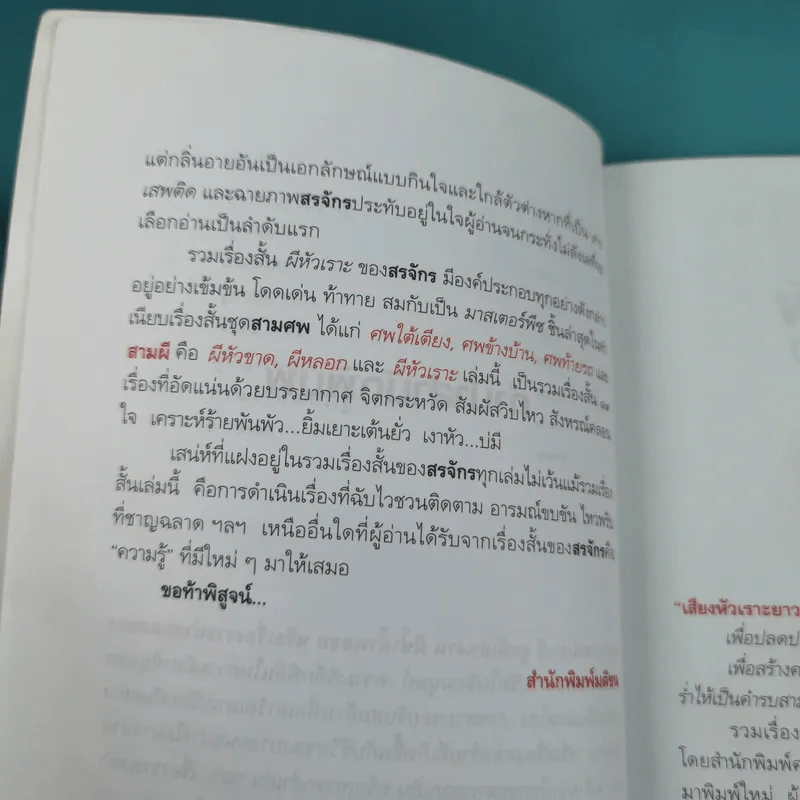 แต่กลิ่นอายอันเป็นเอกลักษณ์แบบกินใจและใกล้ตัวต่างหากที่เป็น
เสพติด และฉายภาพสรจักรประทับอยู่ในใจผู้อ่านจนกระทั่งไม่ลังเลที่จะ
เลือกอ่านเป็นลำดับแรก
รวมเรื่องสั้น ผีหัวเราะ ของสรจักร มีองค์ประกอบทุกอย่างดังกล่าว
อยู่อย่างเข้มข้น โดดเด่น ท้าทาย สมกับเป็น มาสเตอร์พีซ ชิ้นล่าสุดในทำ
เนียบเรื่องสั้นชุดสามศพ ได้แก่ ศพใต้เตียง, ศพข้างบ้าน, ศพท้ายรถ และ
สามผี คือ ผีหัวขาด, ผีหลอก และ ผีหัวเราะ เล่มนี้ เป็นรวมเรื่องสั้น
เรื่องที่อัดแน่นด้วยบรรยากาศ จิตกระหวัด สัมผัสวิบไหว สังหรณ์คลอน
ใจ เคราะห์ร้ายพันพัว...ยิ้มเยาะเต้นยั่ว เงาหัว...บ่มี
เสน่ห์ที่แฝงอยู่ในรวมเรื่องสั้นของสรจักรทุกเล่มไม่เว้นแม้รวมเรื่อง
สั้นเล่มนี้ คือการดำเนินเรื่องที่ฉับไวชวนติดตาม อารมณ์ขบขัน ไหวพริบ
ที่ชาญฉลาด ฯลฯ เหนืออื่นใดที่ผู้อ่านได้รับจากเรื่องสั้นของสรจักรคือ
“ความรู้” ที่มีใหม่ ๆ มาให้เสมอ
ขอท้าพิสูจน์...
สำนักพิมพ์มติชน
“เสียงหัวเราะยาว
เพื่อปลดป
เพื่อสร้างค
ร่ำไห้เป็นคำรบสาม
รวมเรื่อง
โดยสำนักพิมพ์ด
มาพิมพ์ใหม่ ผู้